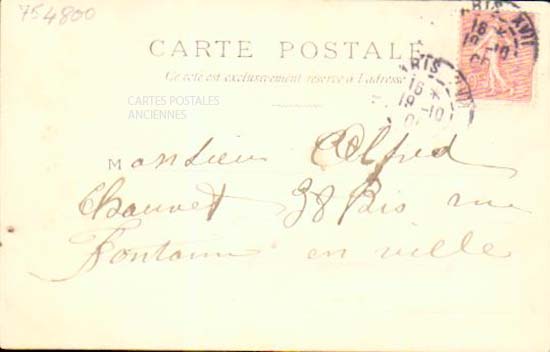 754800
CARTE POSTALE
Ce côté est exclusivement réservé à l'adresse
CARTES POSTALES
ANCIENNES
PARIS XVII
18 *
19 -10
ARIS XVII
18 *
19 -10
Monsieur Alfred
Chauvet 38 Bis rue
Fontaine en ville